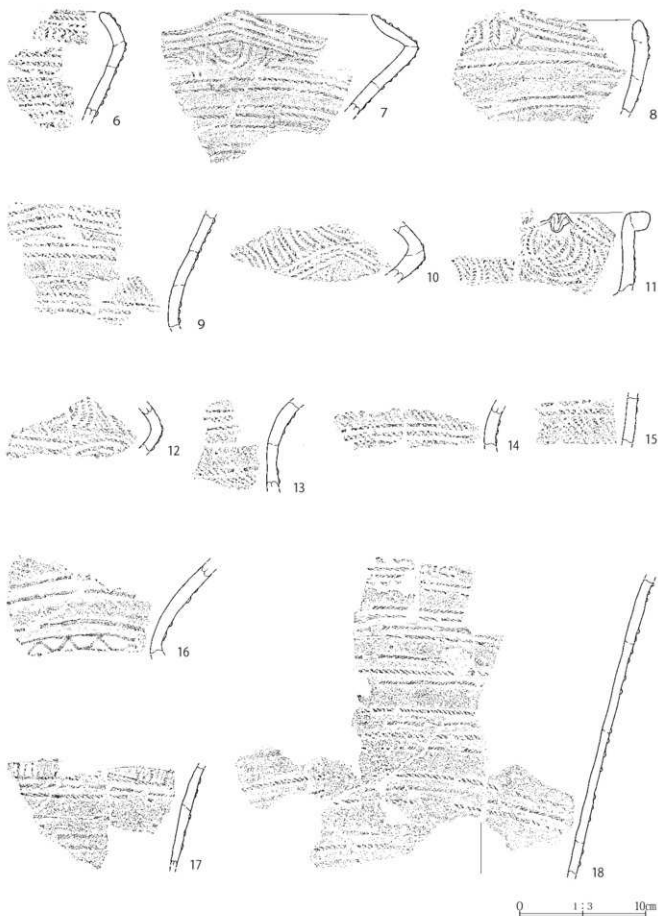 6
7
8
9
10
11
12
13
14
15
16
17
18
0 1:3 10cm